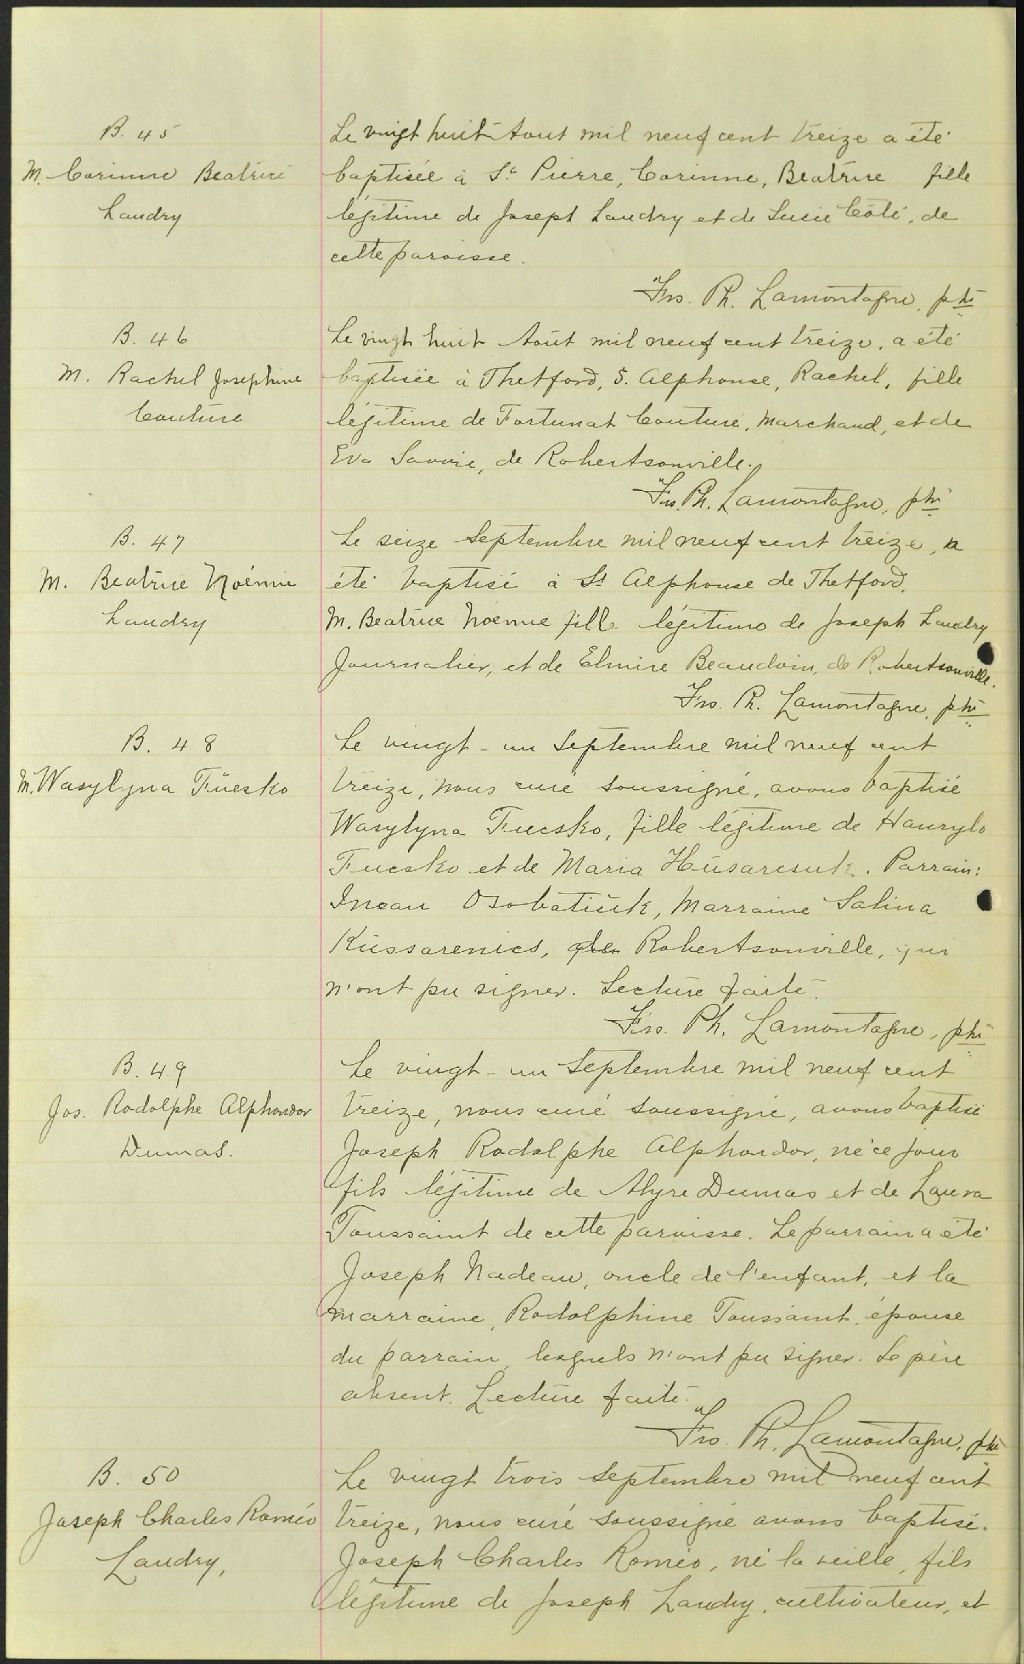 B. 45
M. Corinne Beatrice
Landry
Le vingt huit Aout mil neuf cent treize a été
baptisée à St Pierre, Corinne, Beatrice fille
légitime de Joseph Landry et de Lucie Côté, de
cette paroisse.
Frs. Ph. Lamontagne, ptre
B. 46
M. Rachel Josephine
Couture
Le vingt huit Août mil neuf cent treize, a été
baptisée à Thetford, S. Alphonse, Rachel, fille
légitime de Fortunat Couture, Marchand, et de
Eva Savoie, de Robertsonville.
Frs. Ph. Lamontagne, ptre
B. 47
M. Beatrice Noémie
Landry
Le seize Septembre mil neuf cent treize, a
été baptisé à St Alphonse de Thetford,
M. Beatrice Noemie fille légitime de Joseph Landry
Journalier, et de Elmire Beaudoin, de Robertsonville.
Frs. Ph. Lamontagne, ptre
B. 48
M. Wasylyna Fuesko
Le vingt-un Septembre mil neuf cent
treize, nous curé soussigné, avons baptisé
Wasylyna Fucsko, fille légitime de Hawrylo
Fucsko et de Maria Husaresuk. Parrain:
Incan Osobatiuk, Marraine Salina
Kussarenics, de Robertsonville, qui
n'ont pu signer. Lecture faite.
Frs. Ph. Lamontagne, ptre
B. 49
Jos. Rodolphe Alphondor
Dumas.
Le vingt-un Septembre mil neuf cent
treize, nous curé soussigné, avons baptisé
Joseph Rodolphe Alphondor, né ce jour
fils légitime de Alyre Dumas et de Laura
Toussaint de cette paroisse. Le parrain a été
Joseph Nadeau, oncle de l'enfant, et la
marraine, Rodolphine Toussaint, épouse
du parrain, lesquels n'ont pu signer. Le père
absent. Lecture faite.
Frs. Ph. Lamontagne, ptre
B. 50
Joseph Charles Roméo
Landry,
Le vingt trois Septembre mil neuf cent
treize, nous curé soussigné avons baptisé.
Joseph Charles Roméo, né la veille, fils
légitime de Joseph Landry, cultivateur, et